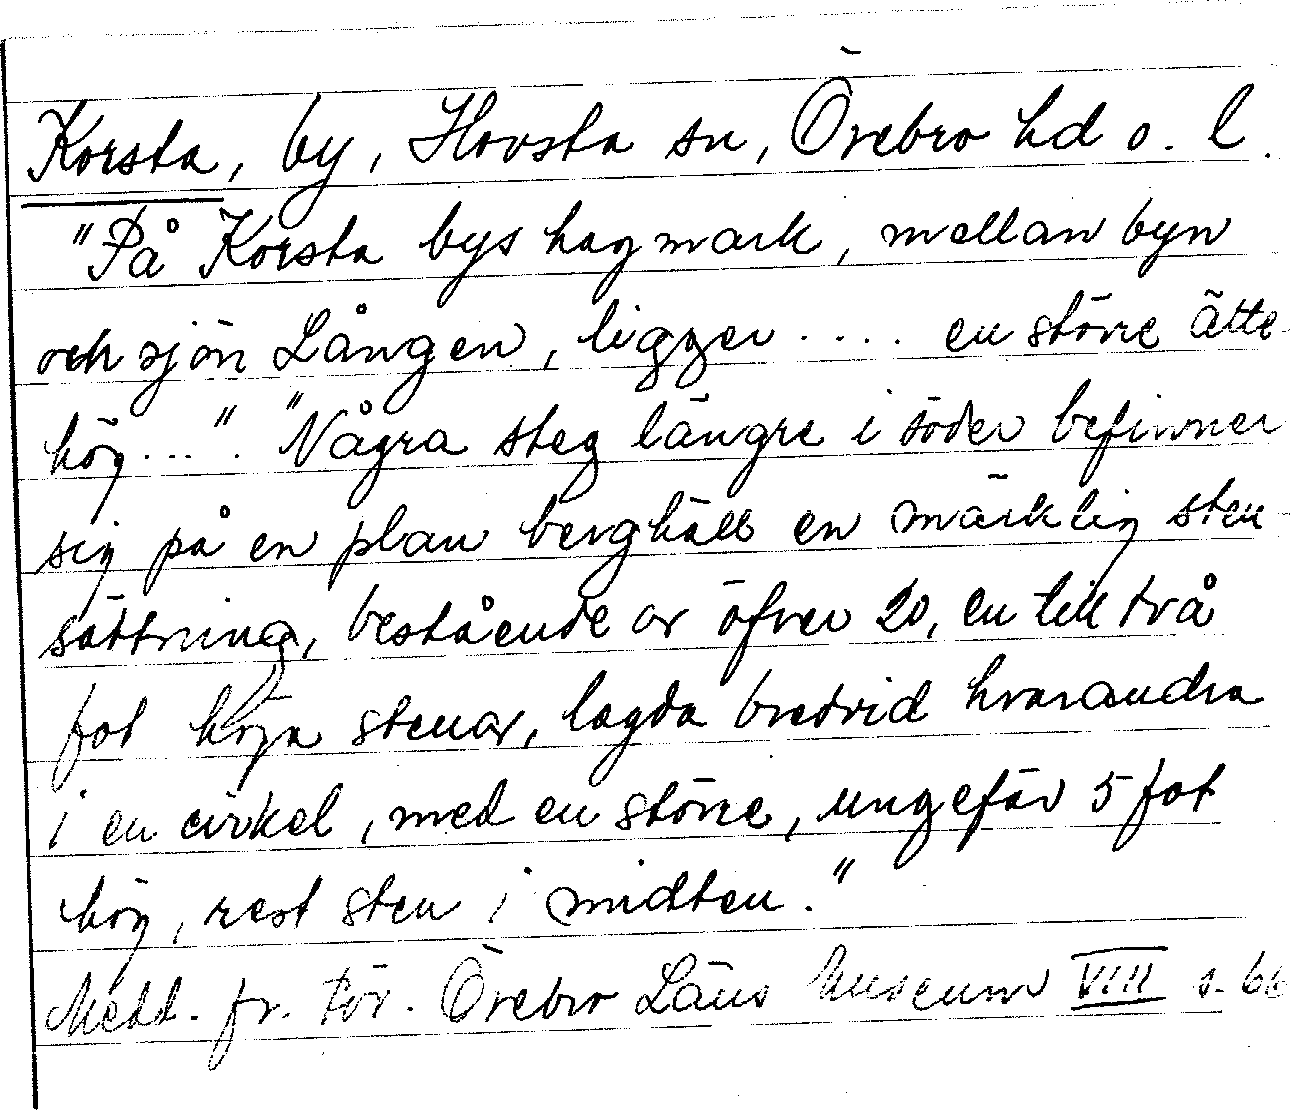 Korsta, by, Hovsta sn, Örebro hd o. l.
"På Korsta bys hagmark, mellan byn
och sjön Lången, ligger .... en större ätte-
hög...". "Några steg längre i söder befinner
sig på en plan berghäll en märklig sten-
sättning, bestående av öfver 20, en till två
fot höga stenar, lagda bredvid hvarandra
i en cirkel, med en större, ungefär 5 fot
hög, rest sten i midten."
Medd. fr. För. Örebro Läns Museum VIII s. 66